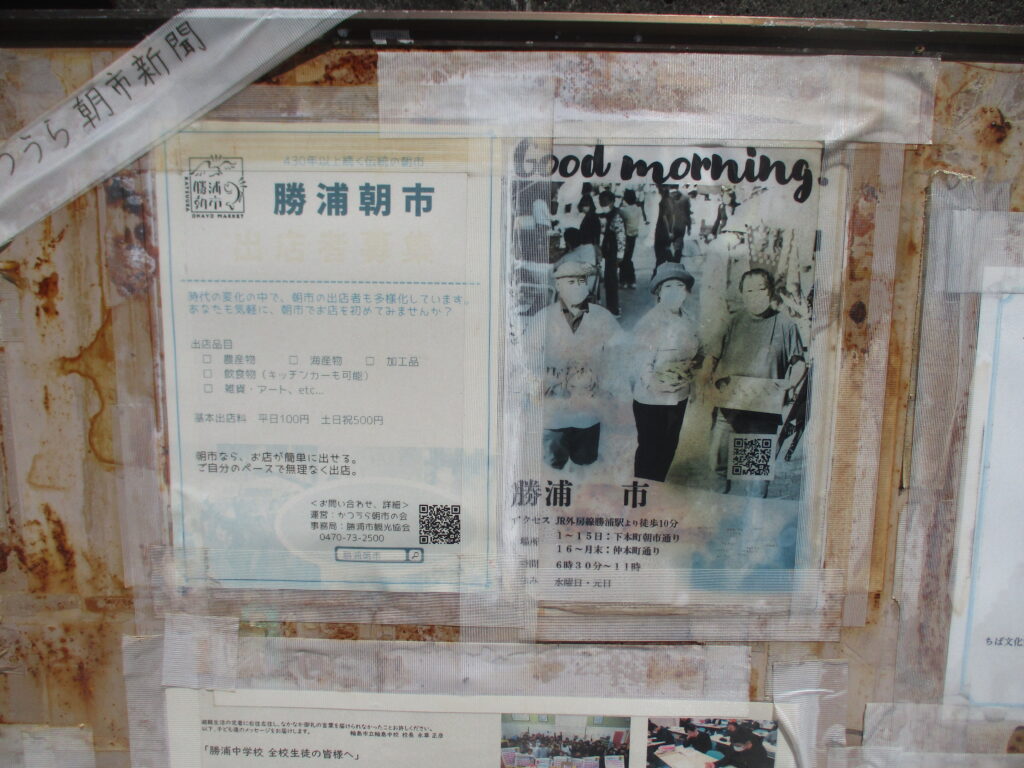 つうら朝市新聞
430年以上続く伝統の朝市
勝浦朝市
KATSUURA
勝浦
朝市
OHAYO MARKET
出店者募集
時代の変化の中で、朝市の出店者も多様化しています。
あなたも気軽に、朝市でお店を初めてみませんか？
出店品目
□ 農産物 □ 海産物 □ 加工品
□ 飲食物（キッチンカーも可能）
□ 雑貨・アート、etc...
基本出店料 平日100円 土日祝500円
朝市なら、お店が簡単に出せる。
ご自分のペースで無理なく出店。
＜お問い合わせ、詳細＞
運営：かつうら朝市の会
事務局：勝浦市観光協会
0470-73-2500
勝浦朝市
Good morning.
勝浦 市
アクセス JR外房線勝浦駅より徒歩10分
場所 １～１５日：下本町朝市通り
１６～月末：仲本町通り
時間 ６時３０分～１１時
休み 水曜日・元日
以下、子ども達のメッセージをお届けします。
輪島市立輪島中学校 校長
「勝浦中学校 全校生徒の皆様へ」
ちば文化